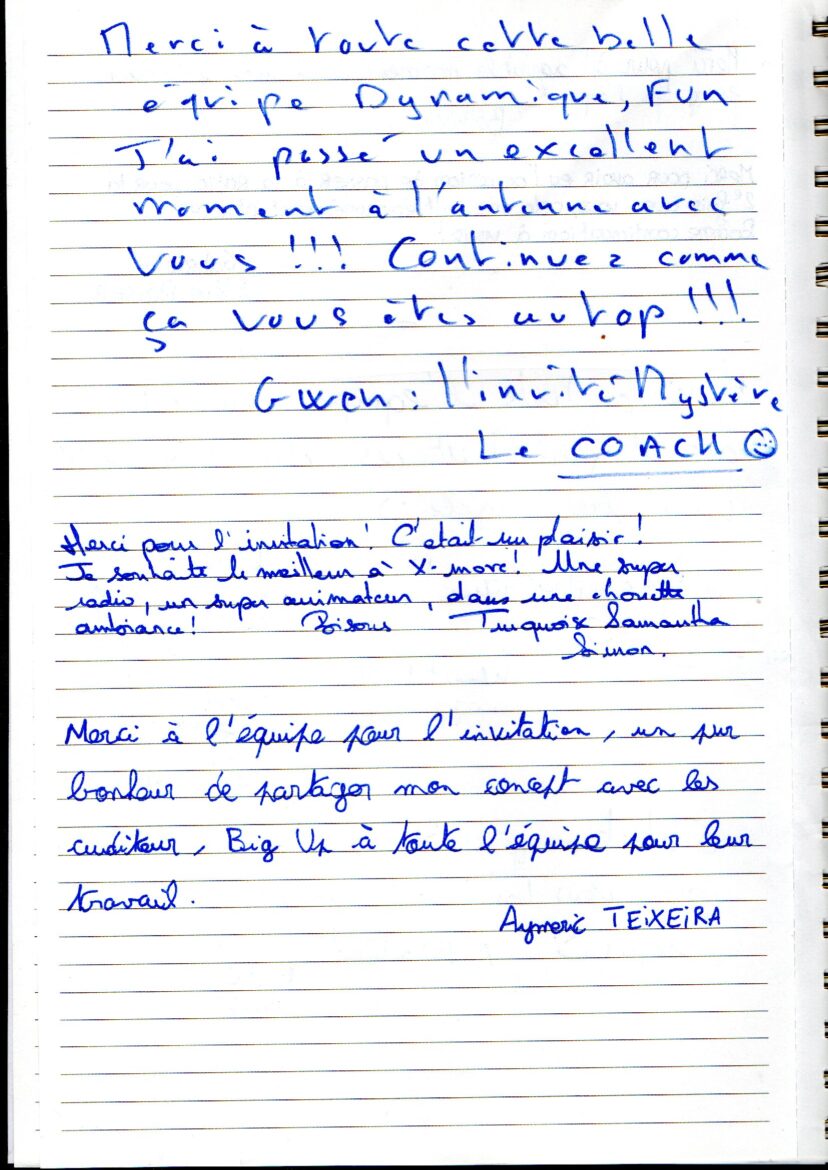 Merci à toute cette belle
équipe Dynamique, Fun
J'ai passé un excellent
moment à l'antenne avec
vous !!! Continuez comme
ça vous êtes au top !!!
Gwen : l'invité Mystère
Le COACH
Merci pour l'invitation! C'était un plaisir!
Je souhaite le meilleur à X-more! Une super
radio, un super animateur, dans une chouette
ambiance! Bisous Turquoise Samantha
Simon.
Merci à l'équipe pour l'invitation, un pur
bonheur de partager mon concept avec les
auditeur, Big Up à toute l'équipe pour leur
travail.
Aymeric TEiXEiRA